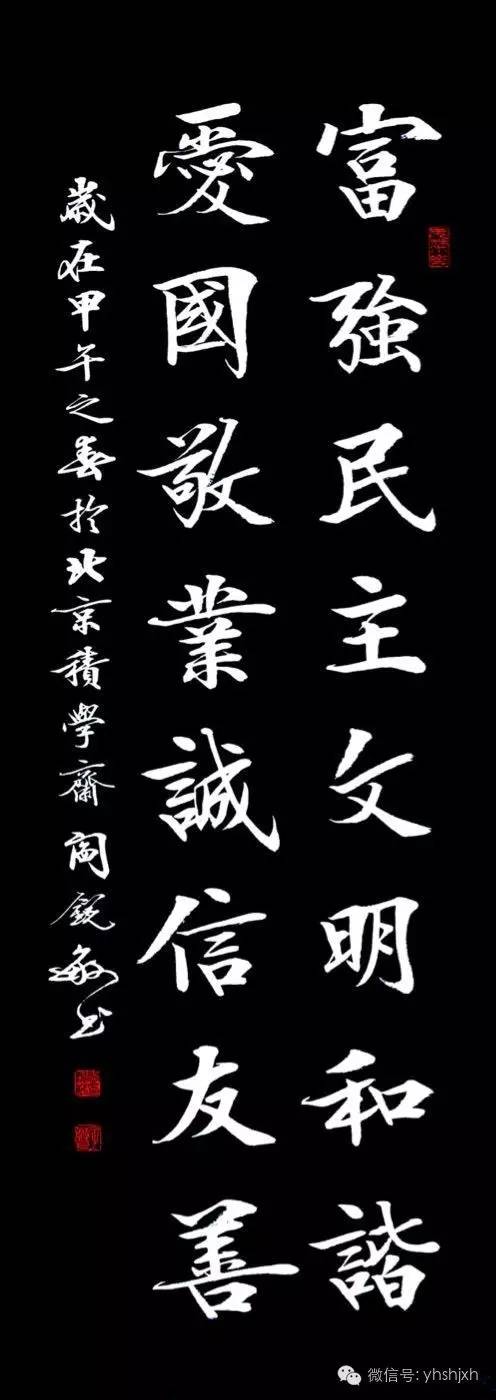 富強民主文明和諧
愛國敬業誠信友善
歲在甲午之春於北京積學齋閻銳敏书
微信号: yhshjxh